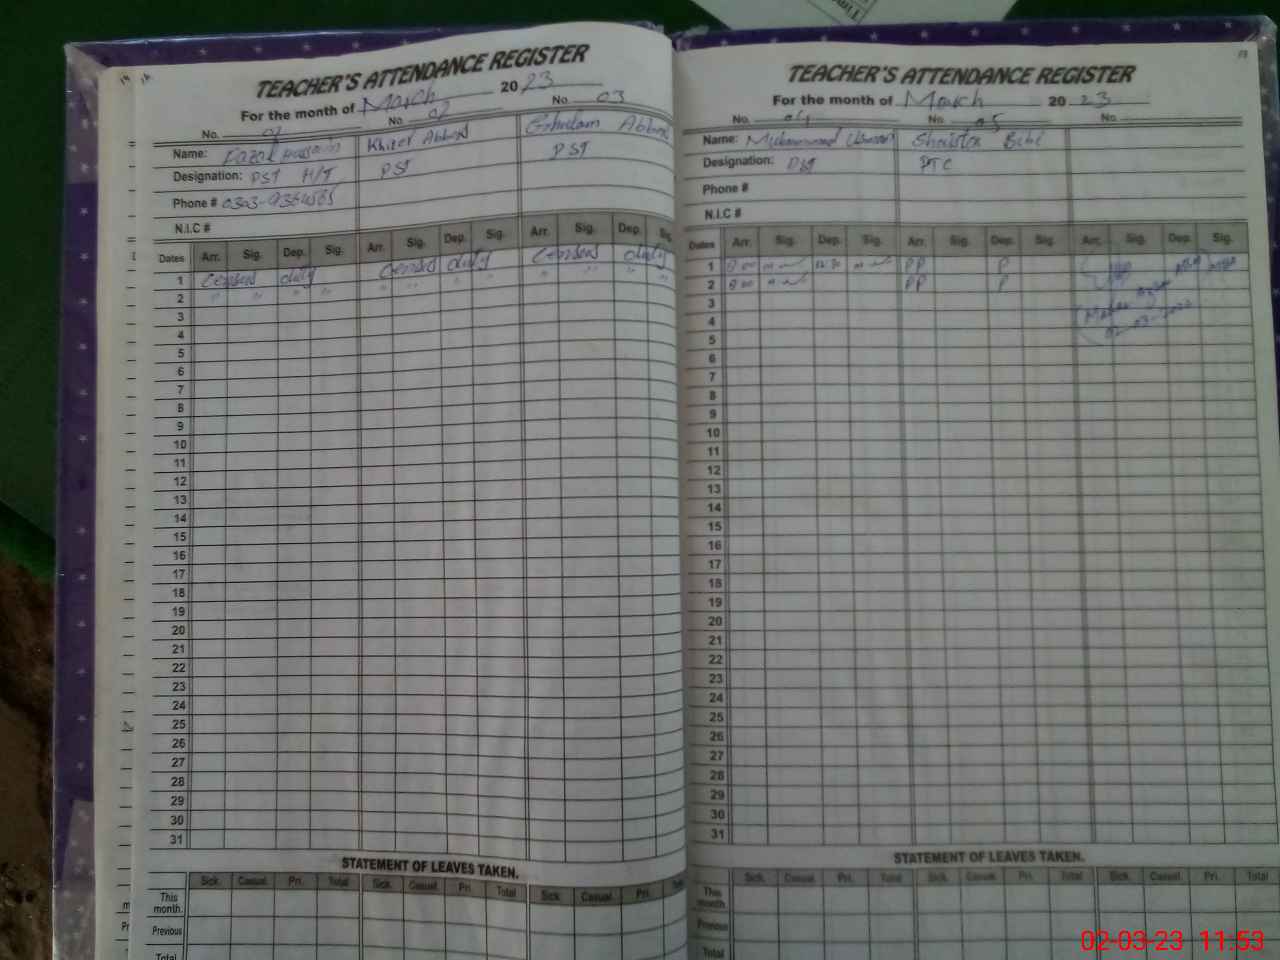 TEACHER'S ATTENDANCE REGISTER
For the month of March 2023
No. 01 No. 02 No. 03
Name: Fazal Hussain Khizer Abbas Ghulam Abbas
Designation: PST H/T PST PST
Phone #
N.I.C #
Dates Arr. Sig. Dep. Sig. Arr. Sig. Dep. Sig. Arr. Sig. Dep. Sig.
1 Census duty Census duty Census duty
2 " " " " " " " "
3
4
5
6
7
8
9
10
11
12
13
14
15
16
17
18
19
20
21
22
23
24
25
26
27
28
29
30
31
STATEMENT OF LEAVES TAKEN.
Sick. Casual. Pri. Total Sick. Casual. Pri. Total Sick. Casual. Pri.
This month.
Previous
Total
TEACHER'S ATTENDANCE REGISTER
For the month of March 2023
No. 04 No. 05 No.
Name: Muhammad Shaista Bibi
Designation: PST PTC
Phone #
N.I.C #
Dates Arr. Sig. Dep. Sig. Arr. Sig. Dep. Sig. Arr. Sig. Dep. Sig.
1 8 00 12 30 PP P
2 8 00 PP P
3
4
5
6
7
8
9
10
11
12
13
14
15
16
17
18
19
20
21
22
23
24
25
26
27
28
29
30
31
STATEMENT OF LEAVES TAKEN.
Sick. Casual. Pri. Total Sick. Casual. Pri. Total Sick. Casual. Pri. Total
This month.
Previous
Total
02-03-23 11:53